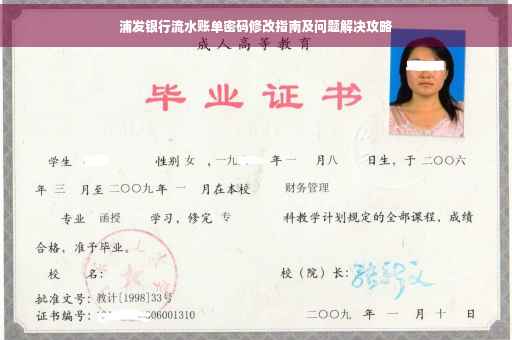 浦发银行流水账单密码修改指南及问题解决攻略
成人高等教育
毕业证书
学生 性别 女 ，一九 年 一 月 八 日生，于 二〇〇六
年 三 月至 二〇〇九 年 一 月在本校 财务管理
专业 函授 学习，修完 专 科教学计划规定的全部课程，成绩
合格，准予毕业。
校 名： 校（院）长：
批准文号：教计[1998]33号
证书编号： 06001310 二〇〇九 年 一 月 十 日